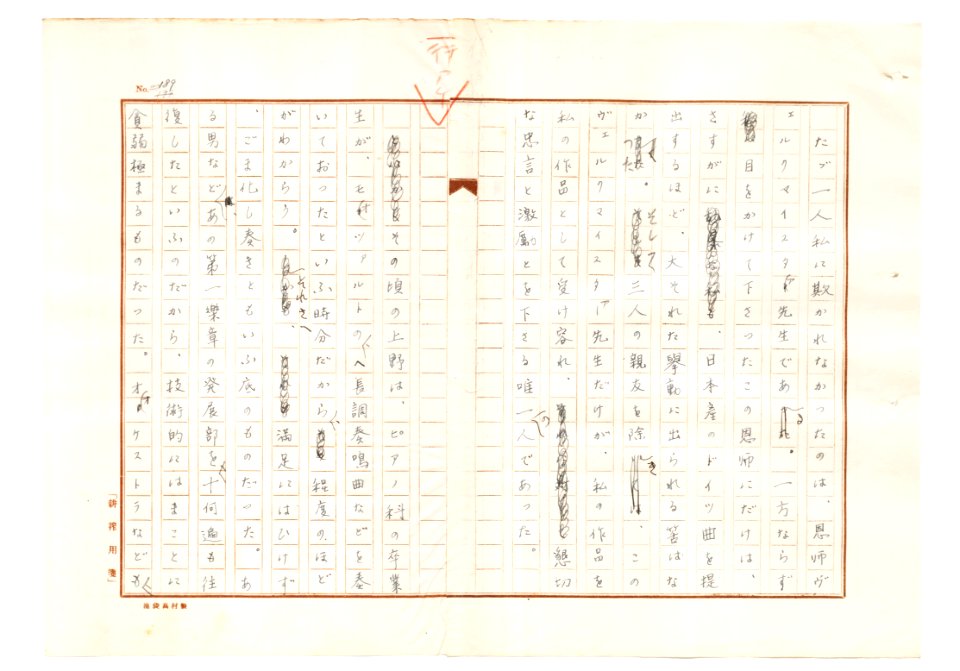 No. 189
たゞ一人私に欺かれなかったのは、恩師ヴ
ェルクマイスター先生である。一方ならず
目をかけて下さったこの恩師にだけは、
さすがに、日本産のドイツ曲を提
出するほど、大それた擧動に出られる筈はな
かった。そして三人の親友を除き、この
ヴェルクマイスター先生だけが、私の作品を
私の作品として受け容れ、懇切
な忠言と激勵とを下さる唯一人であった。
その頃の上野は、ピアノ科の卒業
生が、モツアルトのヘ長調奏鳴曲などを奏
いておったといふ時分だから、程度のほど
がわからう。それさへ、満足にはひけず
、ごま化し奏きともいふ底のものだった。あ
る男など、あの第一樂章の発展部を十何遍も往
復したといふのだから、技術的にはまことに
貧弱極まるものだった。オケストラなども
池袋高村製